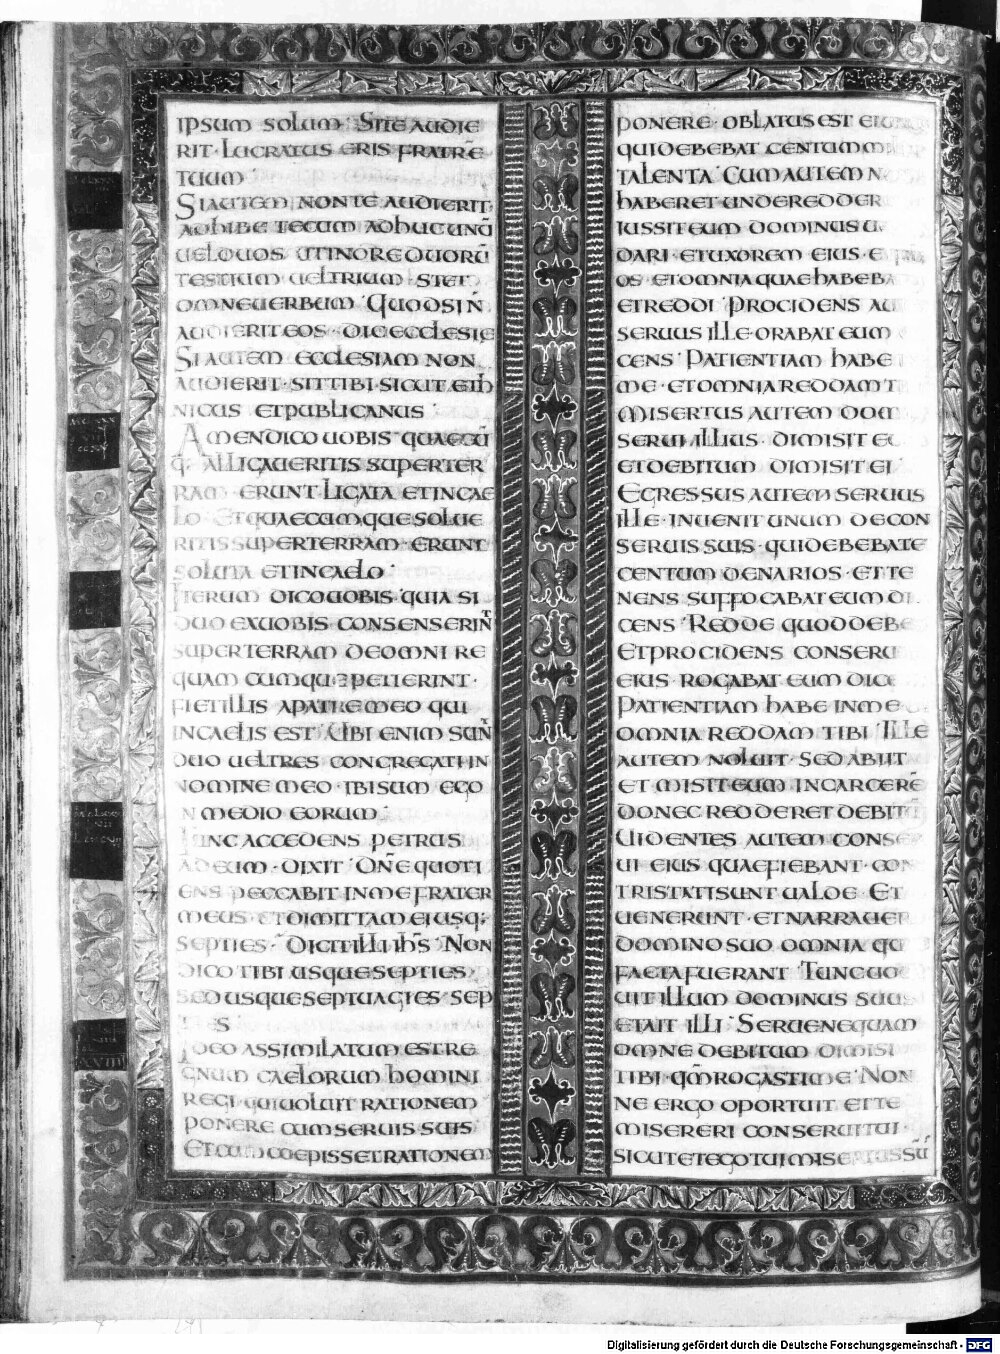 IPSUM SOLUM· SITE AUDIE
RIT· LUCRATUS ERIS FRATRĒ
TUUM
SIAUTEM NONTEAUDIERIT·
ADHIBE TECUM ADHUCUNŪ
UELDUOS UTINOREDUORŪ
TESTIUM UELTRIUM STET
OMNEUERBUM· QUODSIN̄
AUDIERITEOS· DICECCLESIE
SIAUTEM ECCLESIAM NON
AUDIERIT· SITTIBI SICUT ETH
NICUS ETPUBLICANUS·
AMENDICOUOBIS QUAECŪ
Q: ALLIGAUERITIS SUPERTER
RAM· ERUNT LIGATA ETINCAE
LO· ETQUAECUMQUESOLUE
RITISSUPERTERRAM· ERUNT
SOLUTA ETINCAELO·
ITERUM DICOUOBIS· QUIA SI
DUO EXUOBIS CONSENSERIN̄T
SUPERTERRAM DEOMNI RE
QUAM CUMQUE PETIERINT·
FIETILLIS APATREMEO QUI
INCAELIS EST· UBI ENIM SUN̄T
DUO UELTRES CONGREGATI IN
NOMINE MEO· IBISUM EGO
IN MEDIO EORUM·
TUNC ACCEDENS PETRUS
ADEUM· DIXIT· DNE QUOTI
ENS PECCABIT INME FRATER
MEUS· ETDIMITTAM EIUSQ:
SEPTIES· DICITILLI IHS· NON
DICO TIBI USQUESEPTIES·
SED USQUESEPTUAGIES· SEP
TIES
IDEO ASSIMILATUM EST RE
GNUM CAELORUM HOMINI
REGI· QUIUOLUIT RATIONEM
PONERE CUMSERUIS SUIS
ETCUMCOEPISSETRATIONEM
PONERE· OBLATUS EST EI
QUIDEBEBAT CENTUM
TALENTA· CUMAUTEM N
HABERET UNDEREDDER
IUSSITEUM DOMINUS
DARI· ETUXOREM EIUS· E
OS· ETOMNIAQUAEHABEBA
ETREDDI· PROCIDENS AU
SERUUS ILLE· ORABAT EUM
CENS· PATIENTIAM HABE
ME· ETOMNIAREDDAMT
MISERTUS AUTEM DOM
SERUI ILLIUS· DIMISIT EU
ETDEBITUM DIMISIT EI·
EGRESSUS AUTEM SERUUS
ILLE· INUENIT UNUM DECON
SERUIS SUIS· QUIDEBEBATE
CENTUM DENARIOS· ETTE
NENS SUFFOCABAT EUM DI
CENS· REDDE QUODDEBE
ETPROCIDENS CONSERU
EIUS· ROGABAT EUM DICE
PATIENTIAM HABE INME
OMNIA REDDAM TIBI· ILLE
AUTEM NOLUIT· SEDABIIT
ET MISITEUM INCARCERĒ
DONEC REDDERET DEBITŪ
UIDENTES AUTEM CONSER
UI EIUS QUAEFIEBANT· CON
TRISTATISUNT UALDE· ET
UENERUNT· ETNARRAUER
DOMINOSUO OMNIA QU
FACTAFUERANT· TUNCUO
CUITILLUM DOMINUS SUUS
ETAIT ILLI· SERUENEQUAM
OMNE DEBITUM DIMISI
TIBI· QM̄ROGASTIME· NON
NE ERGO OPORTUIT ETTE
MISERERI CONSERUITUI·
SICUTETEGOTUIMISERTUSSŪ
Digitalisierung gefördert durch die Deutsche Forschungsgemeinschaft · DFG